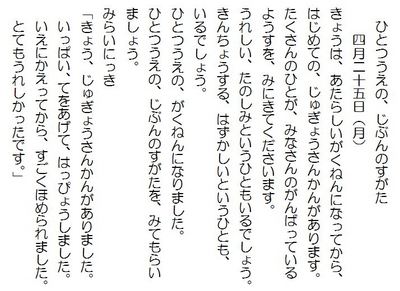 ひとつうえの、じぶんのすがた
四月二十五日（月）
きょうは、あたらしいがくねんになってから、
はじめての、じゅぎょうさんかんがあります。
たくさんのひとが、みなさんのがんばっている
ようすを、みにきてくださいます。
うれしい、たのしみというひともいるでしょう。
きんちょうする、はずかしいというひとも、
いるでしょう。
ひとつうえの、がくねんになりました。
ひとつうえの、じぶんのすがたを、みてもらい
ましょう。
みらいにっき
「きょう、じゅぎょうさんかんがありました。
いっぱい、てをあげて、はっぴょうしました。
いえにかえってから、すごくほめられました。
とてもうれしかったです。」